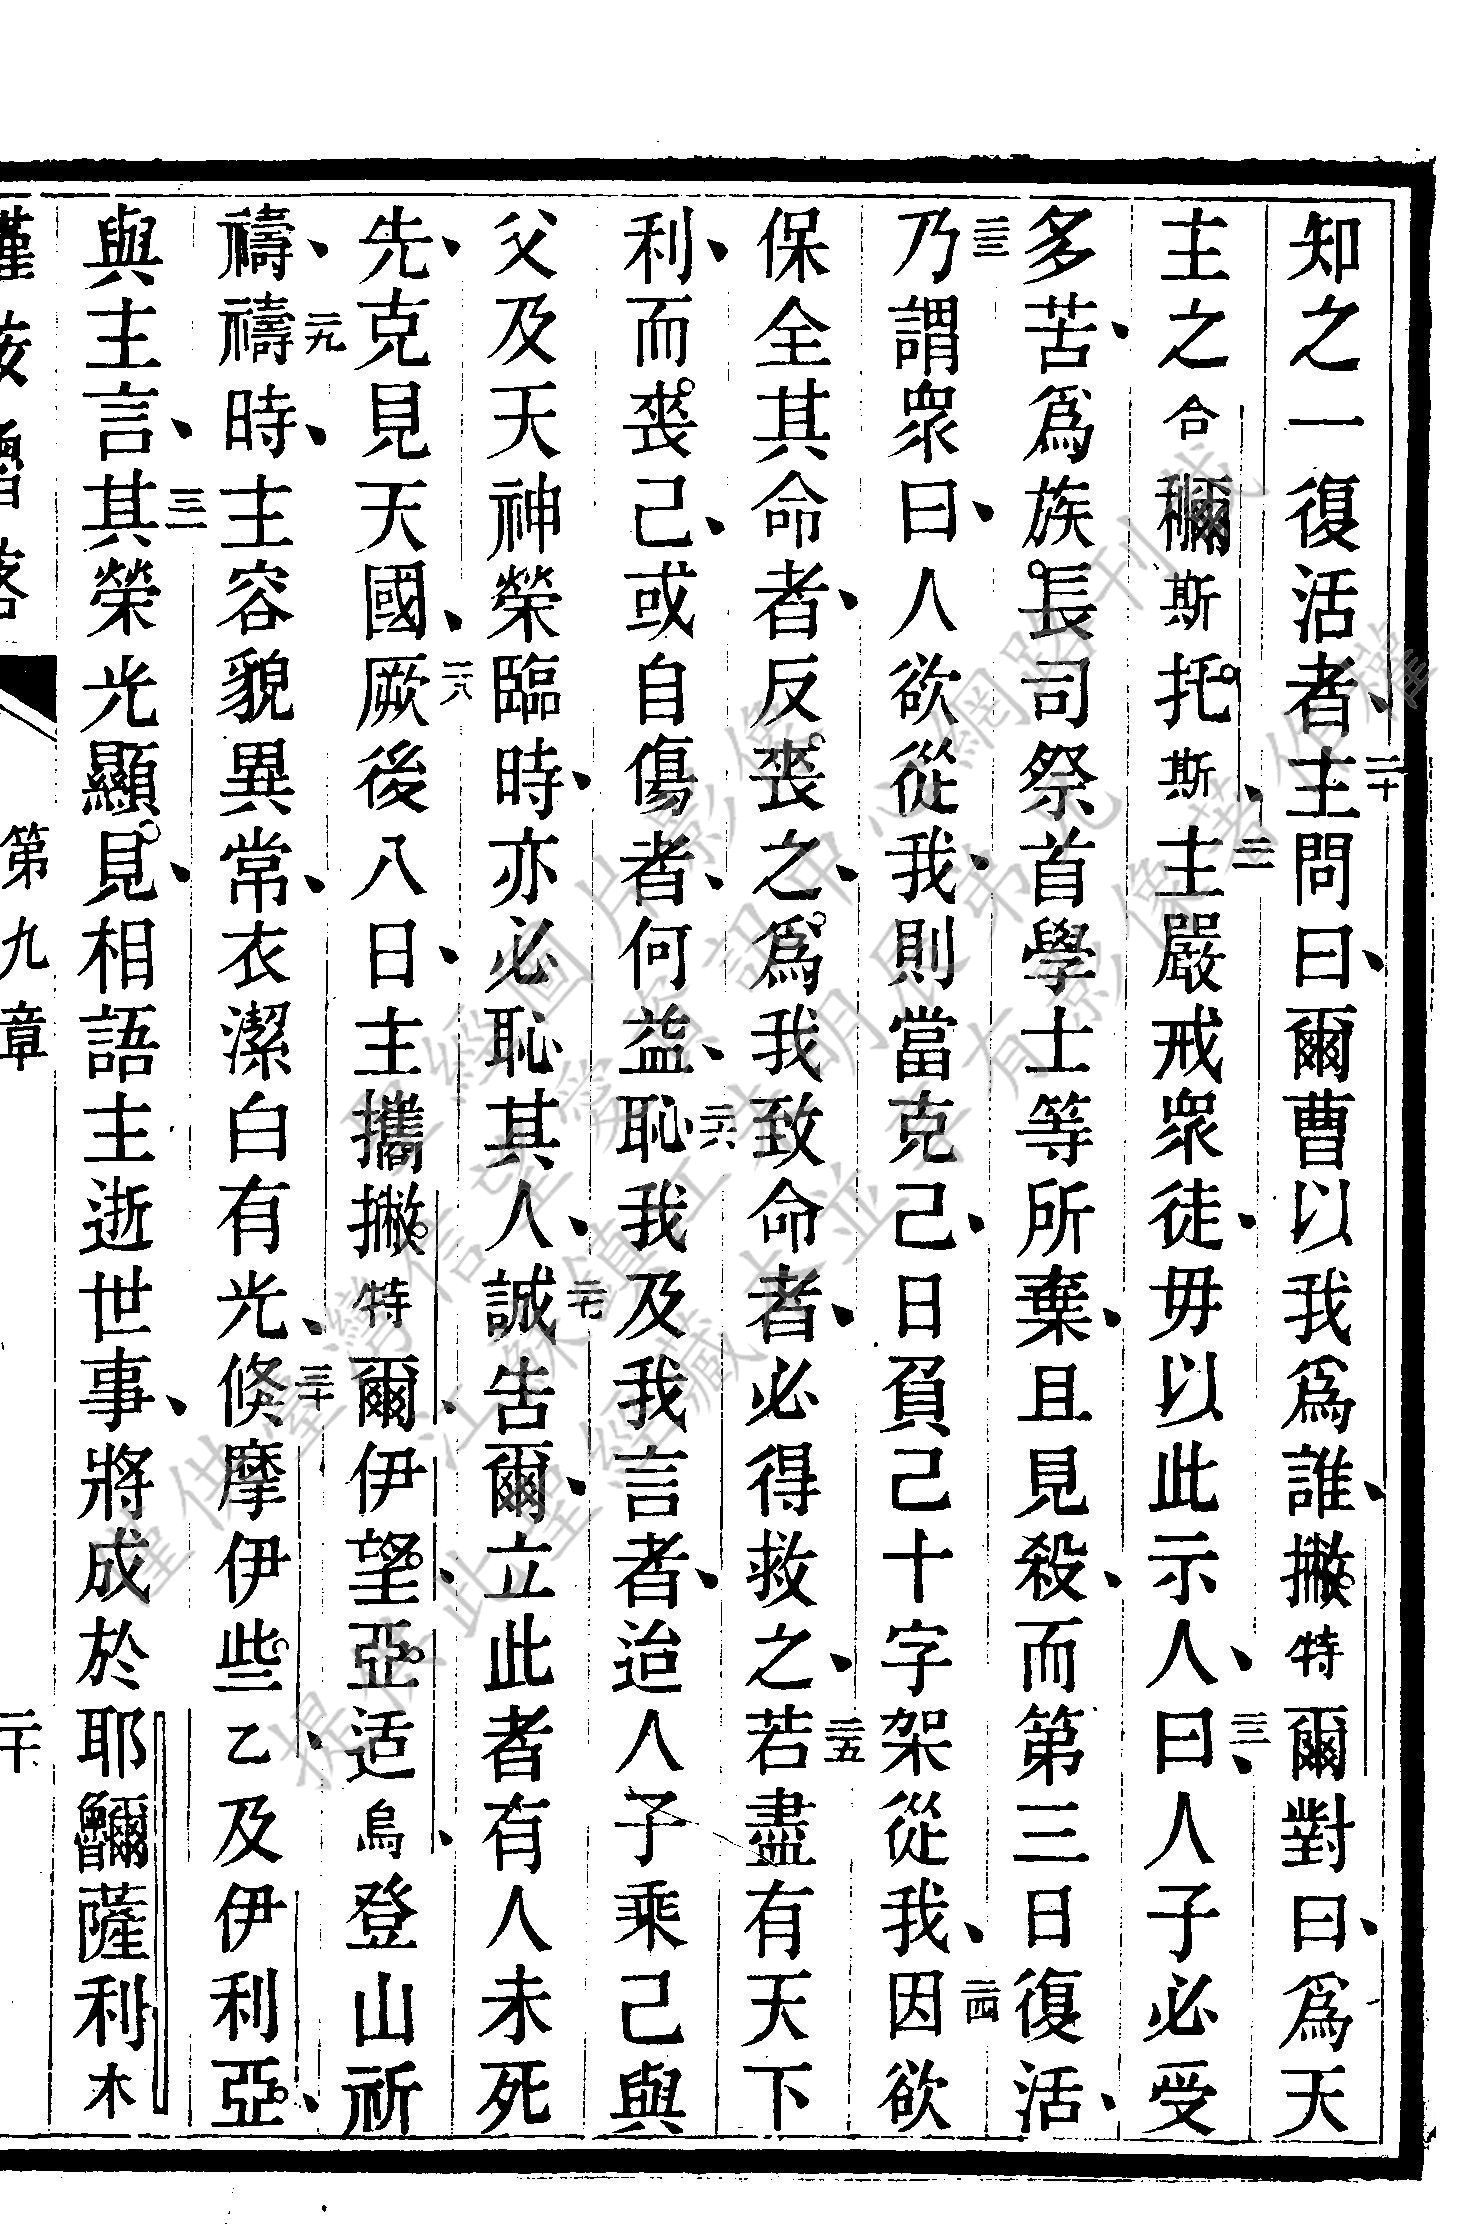 知之一復活者、二十主問曰、爾曹以我爲誰、撇特爾對曰、爲天
主之合穪斯托斯、二一主嚴戒衆徒、毋以此示人、二二曰、人子必受
多苦、爲族長司祭首學士等所棄、且見殺、而第三日復活、
二三乃謂衆曰、人欲從我、則當克己、日負己十字架從我、二四因欲
保全其命者、反喪之、爲我致命者、必得救之、二五若盡有天下
利、而喪己、或自傷者、何益、二六恥我及我言者、迨人子乘己與
父及天神榮臨時、亦必恥其人、二七誠吿爾、立此者有人未死
先、克見天國、二八厥後八日、主攜撇特爾、伊望、亞适烏、登山祈
禱、二九禱時、主容貌異常、衣潔白有光、三十倏摩伊些乙、及伊利亞、
與主言、三一其榮光顯見、相語主逝世事、將成於耶𩆸薩利木
第九章
二十